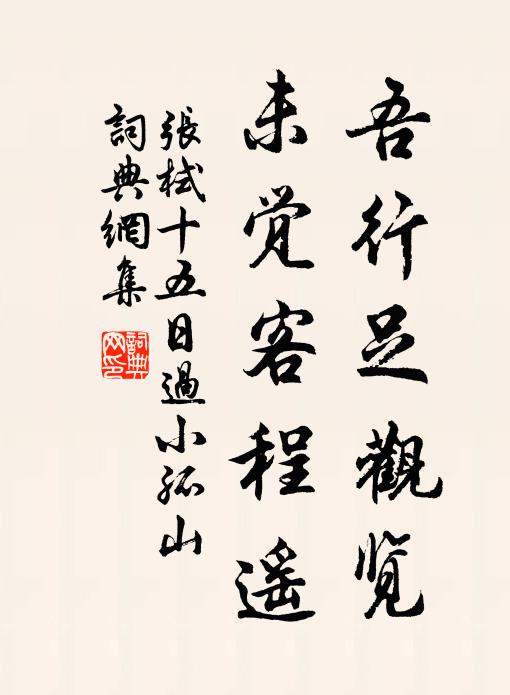 吾行足觀覧
未觉客程遥
張栻十五日過小孤山
詞典網集
詞典网印